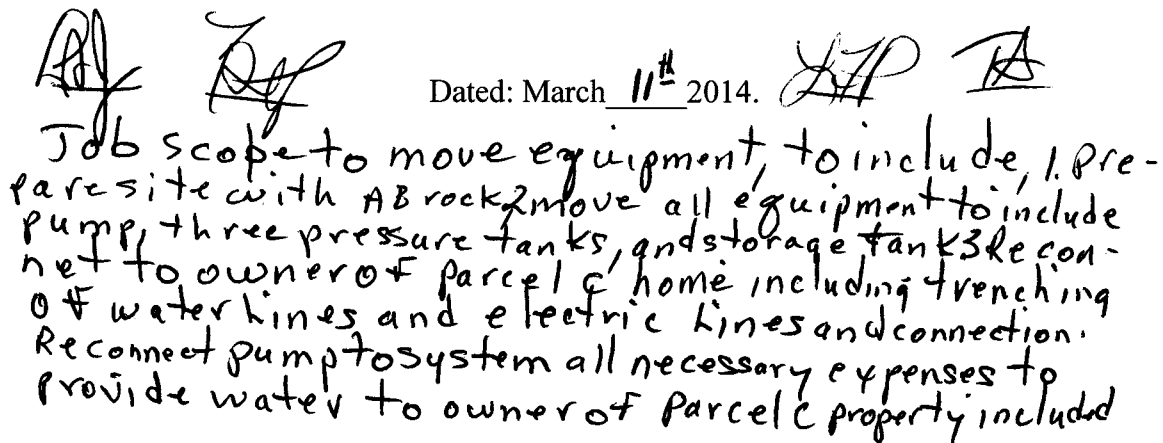 Dated: March 11th 2014.
Job scope to move equipment, to include, 1. Pre-
pare site with AB rock 2 move all equipment to include
pump, three pressure tanks, and storage tank 3 Recon-
net to owner of Parcel C home including trenching
of water Lines and electric Lines and connection.
Reconnect pump to system all necessary expenses to
provide water to owner of Parcel C property included